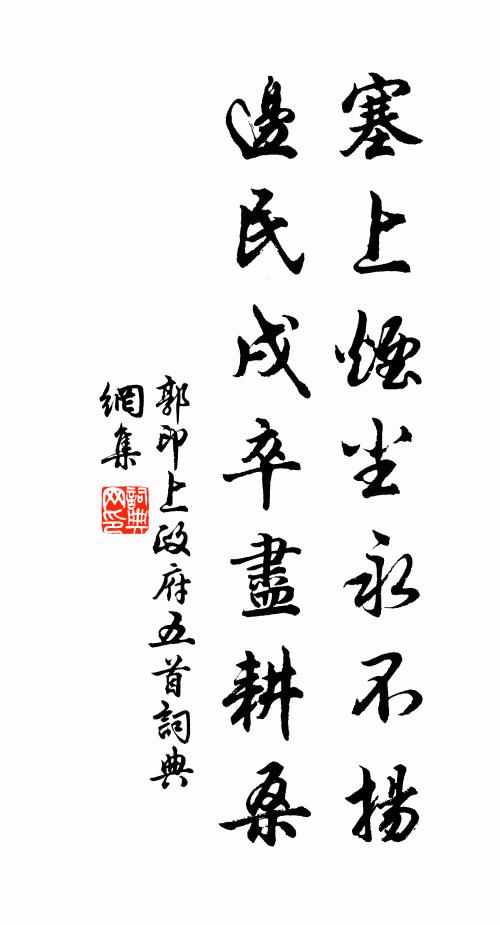 塞上煙尘永不揚
邊民戍卒盡耕桑
郭印上政府五首詞典
網集
詞典
网印